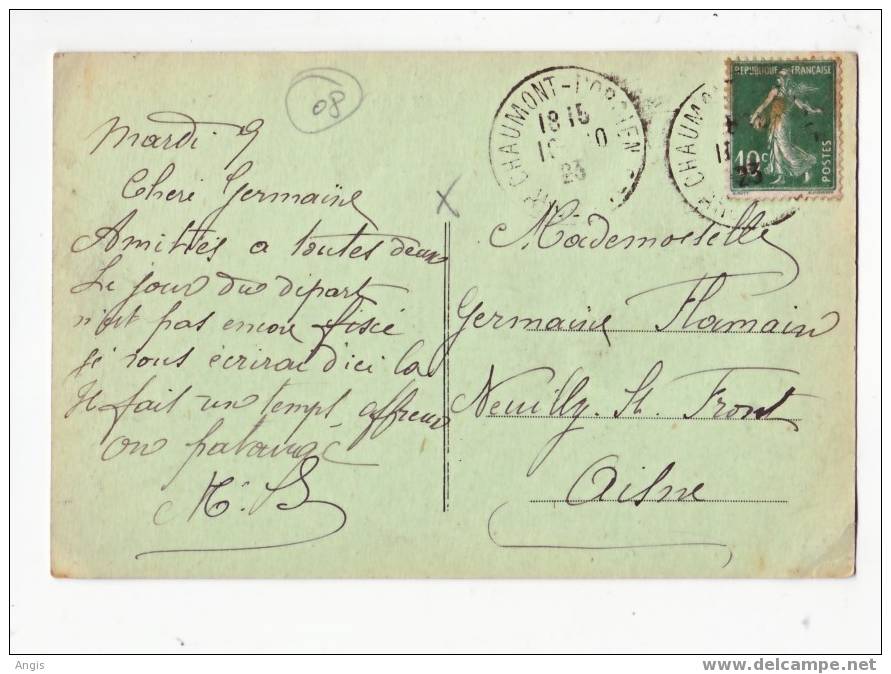 08
Mardi 9
Cheri Germaine
Amittes a toutes deux
Le jour du départ
n'est pas encore fixée
je vous écrirai d'ici la
Il fait un temps affreux
on patauge
M. B
X
Mademoiselle
Germaine Flamain
Neuilly. St. Front
Aisne
CHAUMONT-PORCIEN
18 15
23
CHAUMO
23
REPUBLIQUE FRANÇAISE
10c
POSTES
Angis
www.delcampe.net